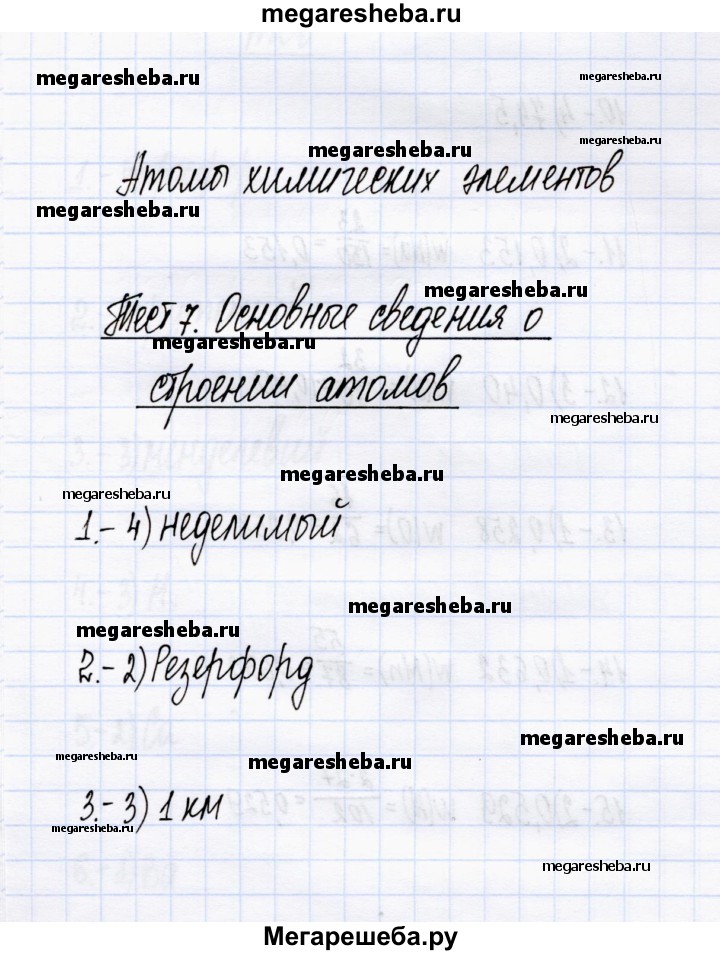 megaresheba.ru
megaresheba.ru
megaresheba.ru
megaresheba.ru
megaresheba.ru
Атомы химических элементов
megaresheba.ru
megaresheba.ru
Тест 7. Основные сведения о
megaresheba.ru
строении атомов
megaresheba.ru
megaresheba.ru
megaresheba.ru
1.- 4) неделимый
megaresheba.ru
megaresheba.ru
2.- 2) Резерфорд
megaresheba.ru
megaresheba.ru
megaresheba.ru
3.- 3) 1 км
megaresheba.ru
megaresheba.ru
Мегарешеба.ру